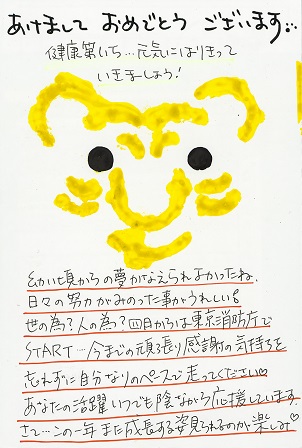 あけまして おめでとう ございます…
健康第いち…元気にはりきって
いきましょう!
幼い頃からの夢かなえられよかったね。
日々の努力がみのった事がうれしい
世の為?人の為?四日からは東京消防庁で
START…今までの頑張り感謝の気持ちを
忘れずに自分なりのペースで走ってください♡
あなたの活躍いつでも陰ながら応援しています。
さて…この一年また成長する姿見られるのが楽しみ♡